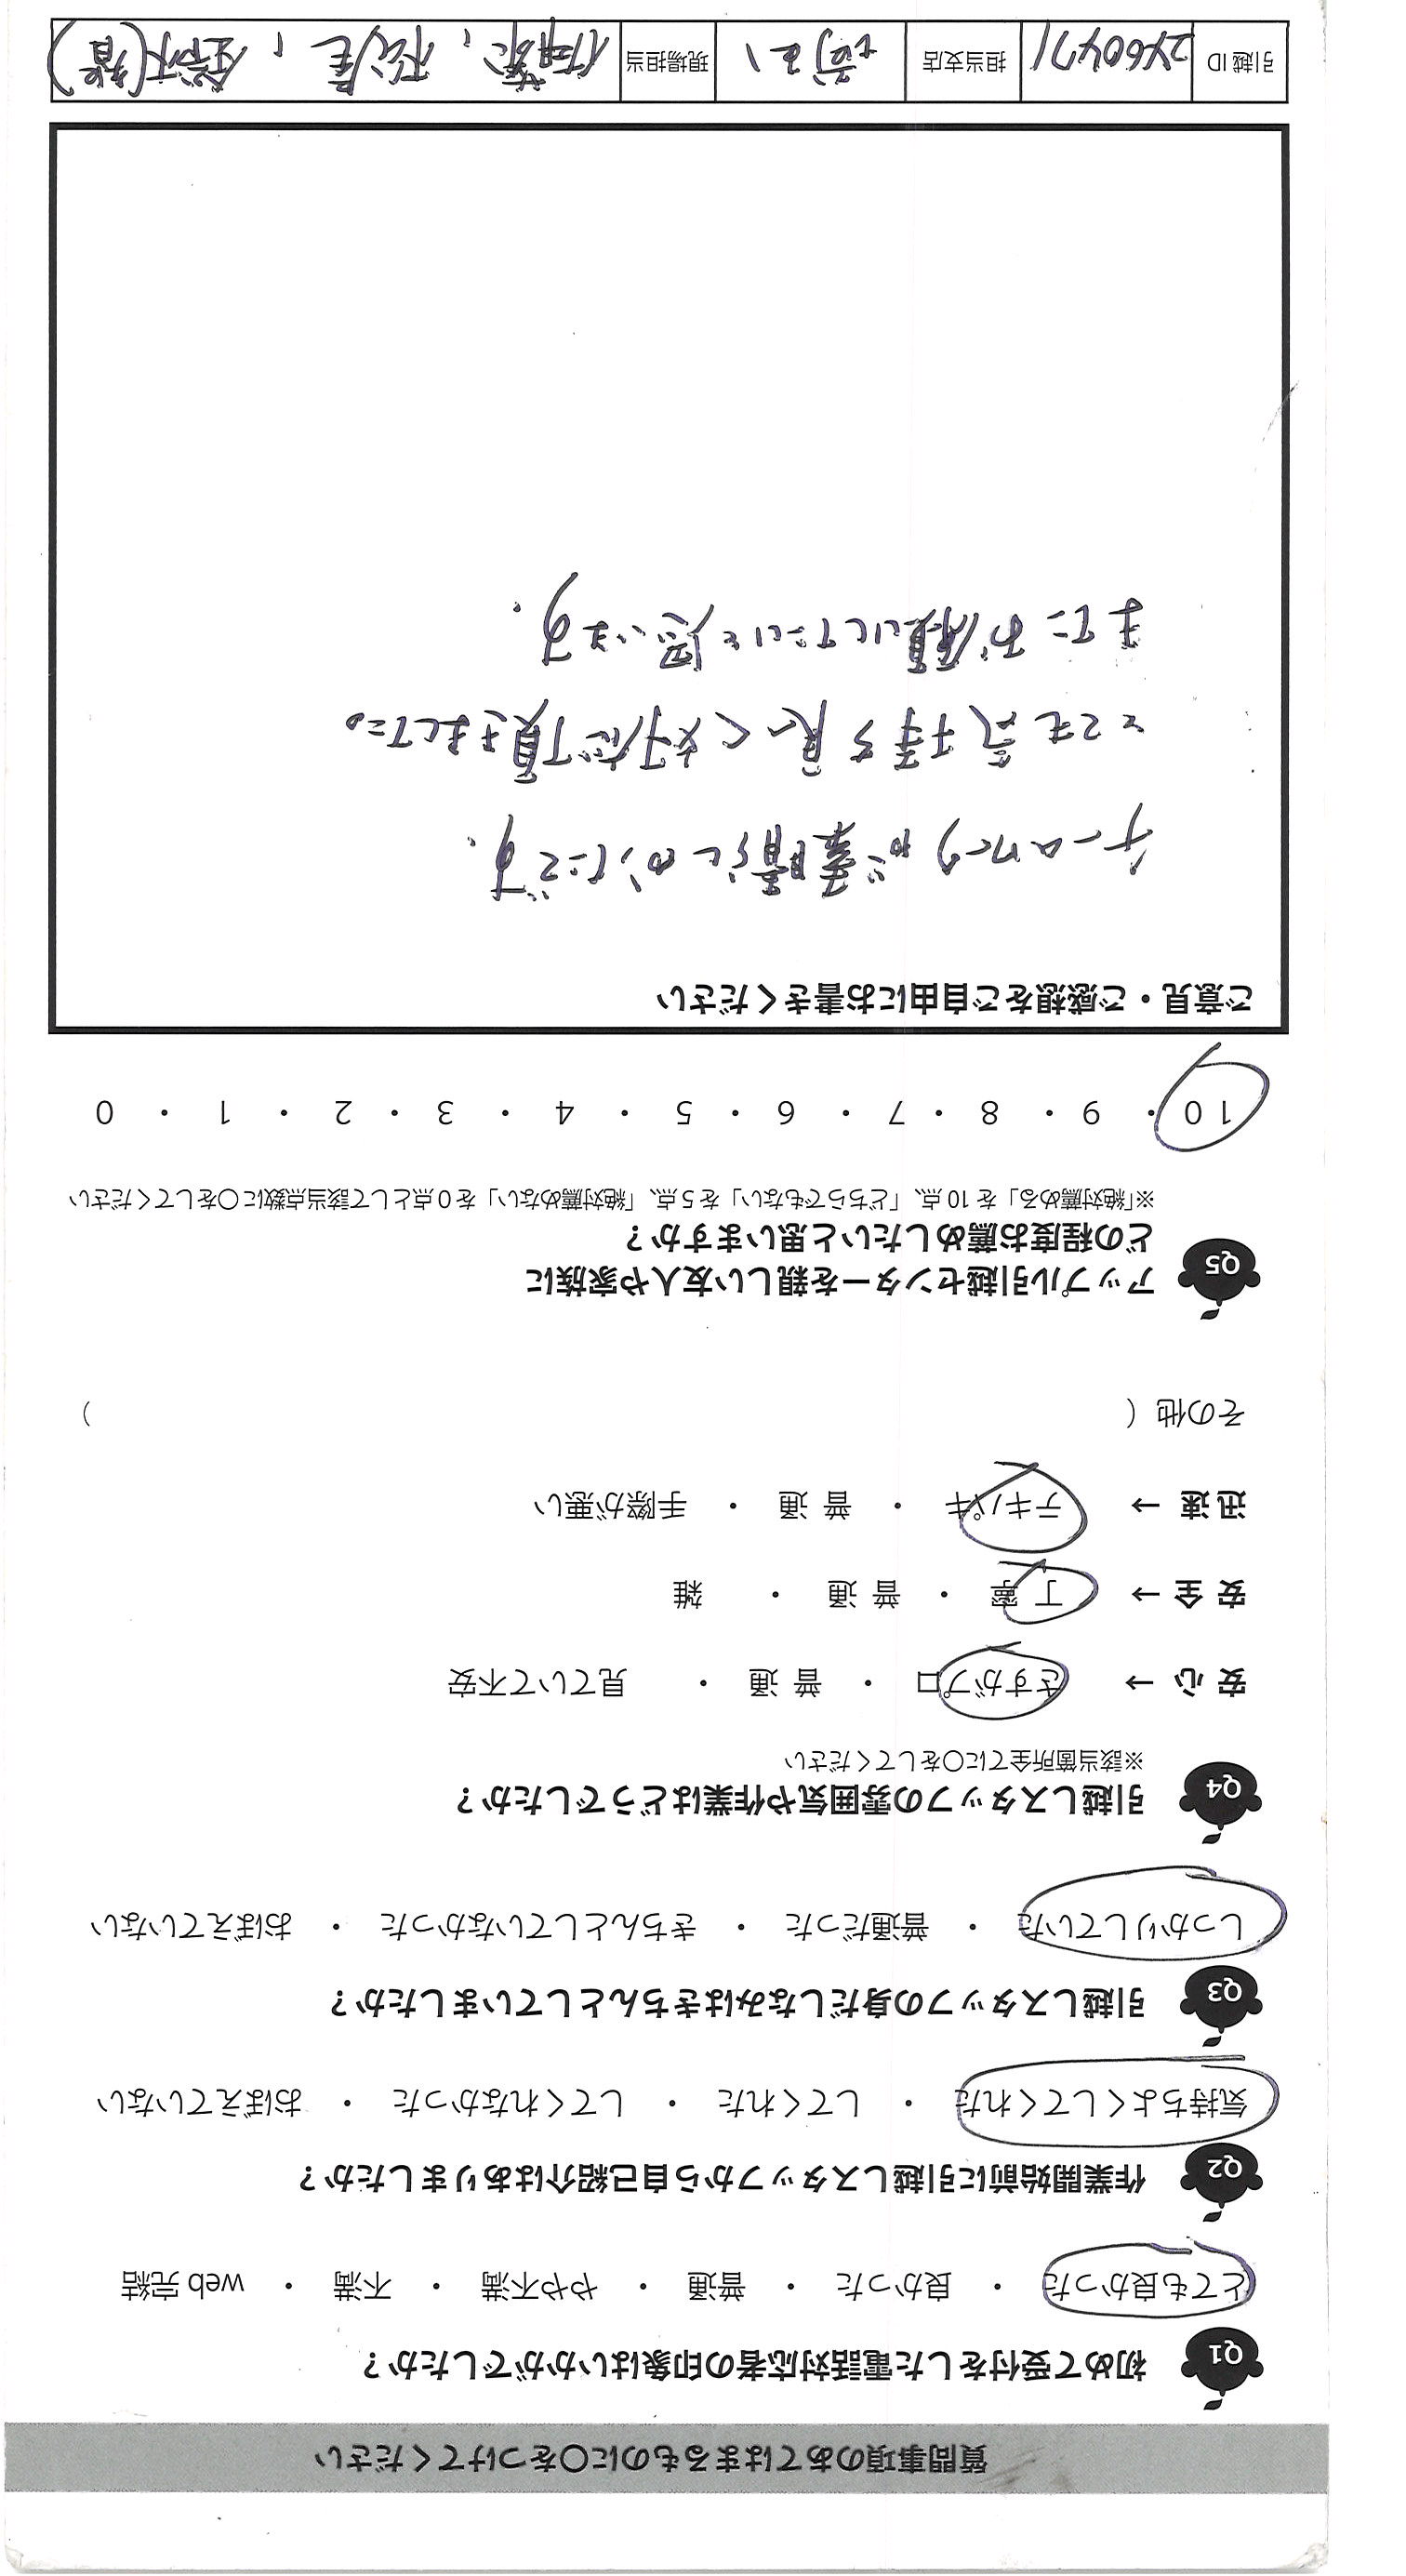 質問事項のあてはまるものに〇をつけてください
Q1 初めて受付をした電話対応者の印象はいかがでしたか？
とても良かった ・ 良かった ・ 普通 ・ やや不満 ・ 不満 ・ web 完結
Q2 作業開始前に引越しスタッフから自己紹介はありましたか？
気持ちよくしてくれた ・ してくれた ・ してくれなかった ・ おぼえていない
Q3 引越しスタッフの身だしなみはきちんとしていましたか？
しっかりしていた ・ 普通だった ・ きちんとしていなかった ・ おぼえていない
Q4 引越しスタッフの雰囲気や作業はどうでしたか？
※該当箇所全てに〇をしてください
安 心 → さすがプロ ・ 普 通 ・ 見ていて不安
安 全 → 丁 寧 ・ 普 通 ・ 雑
迅 速 → テキパキ ・ 普 通 ・ 手際が悪い
その他（ ）
Q5 アップル引越センターを親しい友人や家族に
どの程度お薦めしたいと思いますか？
※「絶対薦める」を 10 点、「どちらでもない」を 5 点、「絶対薦めない」を 0 点として該当点数に〇をしてください
10 ・ 9 ・ 8 ・ 7 ・ 6 ・ 5 ・ 4 ・ 3 ・ 2 ・ 1 ・ 0
ご意見・ご感想をご自由にお書きください
チームワークが素晴しかったです。
とても気持ち良く 頂きました。
またお願いしたいと思います。
引越 ID 2460471 担当支店 現場担当 伊藤、松尾、鈴木(智)